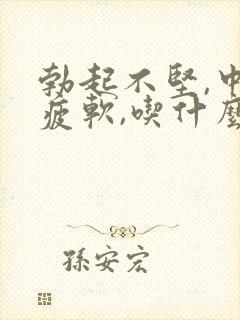 勃起不堅,中
疲軟,喫什麼
孫安宏